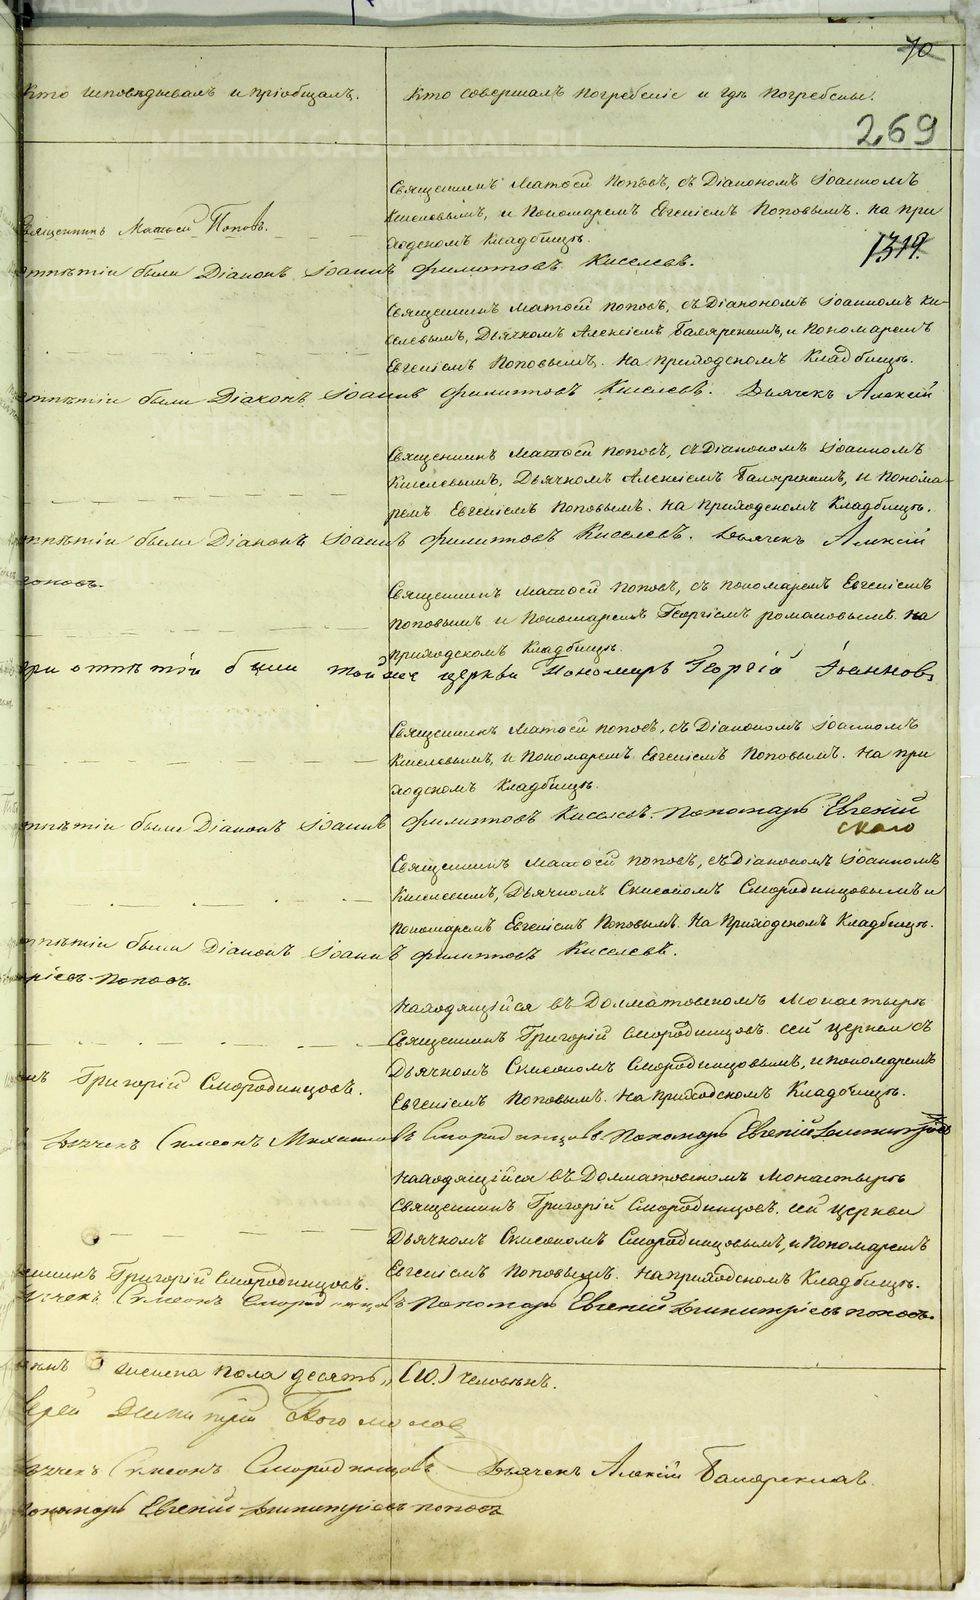 70
Кто исповѣдывалъ и пріобщалъ.
Кто совершалъ погребеніе и гдѣ погребены.
269
Священникъ Матѳей Поповъ, съ Діакономъ Іоанномъ
Киселевымъ, и Пономаремъ Евгеніемъ Поповымъ. На при
Священникъ Матѳей Поповъ.
ходскомъ Кладбищѣ.
1319.
отпѣтіи были Діаконъ Іоаннъ Филиповъ Киселевъ.
Священникъ Матѳей Поповъ, съ Діакономъ Іоанномъ Ки-
селевымъ, Дьячкомъ Алексіемъ и Пономаремъ
Евгеніемъ Поповымъ. На приходскомъ Кладбищѣ.
отпѣтіи были Діаконъ Іоаннъ Филиповъ Киселевъ. Дьячекъ Алексій
Священникъ Матѳей Поповъ, съ Діакономъ Іоанномъ
Киселевымъ, Дьячкомъ Алексіемъ и Понома-
ремъ Евгеніемъ Поповымъ. На приходскомъ Кладбищѣ.
отпѣтіи были Діаконъ Іоаннъ Филиповъ Киселевъ. Дьячекъ Алексій
поповъ.
Священникъ Матѳей Поповъ, съ пономаремъ Евгеніемъ
Поповымъ и Пономаремъ Георгіемъ Романовымъ. На
приходскомъ Кладбищѣ.
при отпѣтіи были той же церкви Пономарь Георгій Іоанновъ
Священникъ Матѳей Поповъ, съ Діакономъ Іоанномъ
Киселевымъ, и Пономаремъ Евгеніемъ Поповымъ. На при
ходскомъ Кладбищѣ.
отпѣтіи были Діаконъ Іоаннъ Филиповъ Киселевъ. Пономарь Евгеній
Священникъ Матѳей Поповъ, съ Діакономъ Іоанномъ
Киселевымъ, Дьячкомъ Смородинцовымъ и
пономаремъ Евгеніемъ Поповымъ. На Приходскомъ Кладбищѣ.
отпѣтіи были Діаконъ Іоаннъ Филиповъ Киселевъ.
Поповъ.
Находящійся въ Долматовскомъ Монастырѣ
Священникъ Григорій Смородинцовъ. сей церкви съ
Дьячкомъ Смородинцовымъ, и пономаремъ
Григорій Смородинцовъ.
Евгеніемъ Поповымъ. На приходскомъ Кладбищѣ.
Дьячекъ Симеонъ Михаиловъ Смородинцовъ Пономарь Евгеній
Находящійся въ Долматовскомъ Монастырѣ
Священникъ Григорій Смородинцовъ. сей церкви
Дьячкомъ Смородинцовымъ, и Пономаремъ
Евгеніемъ Поповымъ. На приходскомъ Кладбищѣ.
Григорій Смородинцовъ.
Симеонъ Смородинцовъ Пономарь Евгеній Димитріевъ поповъ.
пола десять „(10.) человѣкъ.
Димитрій Богомоловъ
Симеонъ Смородинцовъ Дьячекъ Алексій
Пономарь Евгеній Димитріевъ поповъ